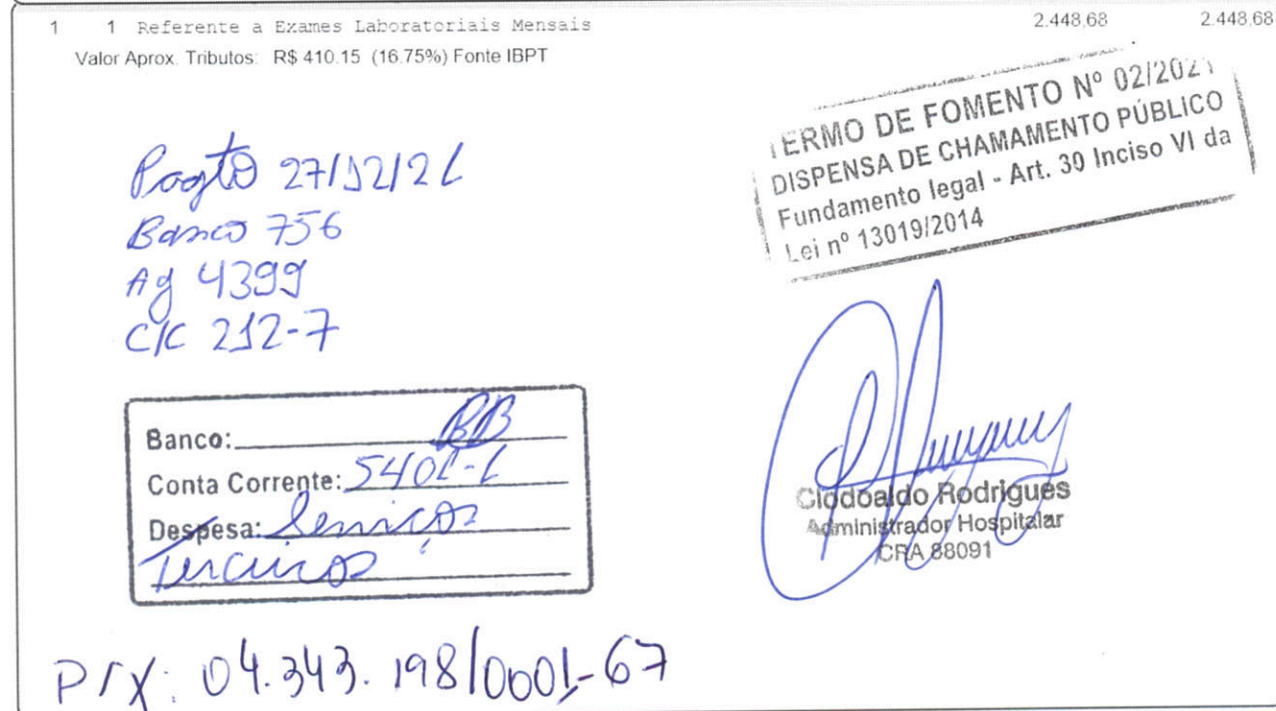 1 1 Referente a Exames Laboratoriais Mensais 2.448,68 2.448,68
Valor Aprox. Tributos: R$ 410.15 (16.75%) Fonte IBPT
TERMO DE FOMENTO Nº 02/2021
DISPENSA DE CHAMAMENTO PÚBLICO
Fundamento legal - Art. 30 Inciso VI da
Lei nº 13019/2014
Pagto 27/12/21
Banco 756
Ag 4399
C/C 212-7
Banco: BB
Conta Corrente: 5401-1
Despesa: Serviços
Terceiros
Clodoaldo Rodrigues
Administrador Hospitalar
CRA 88091
PIX: 04.343.198/0001-67